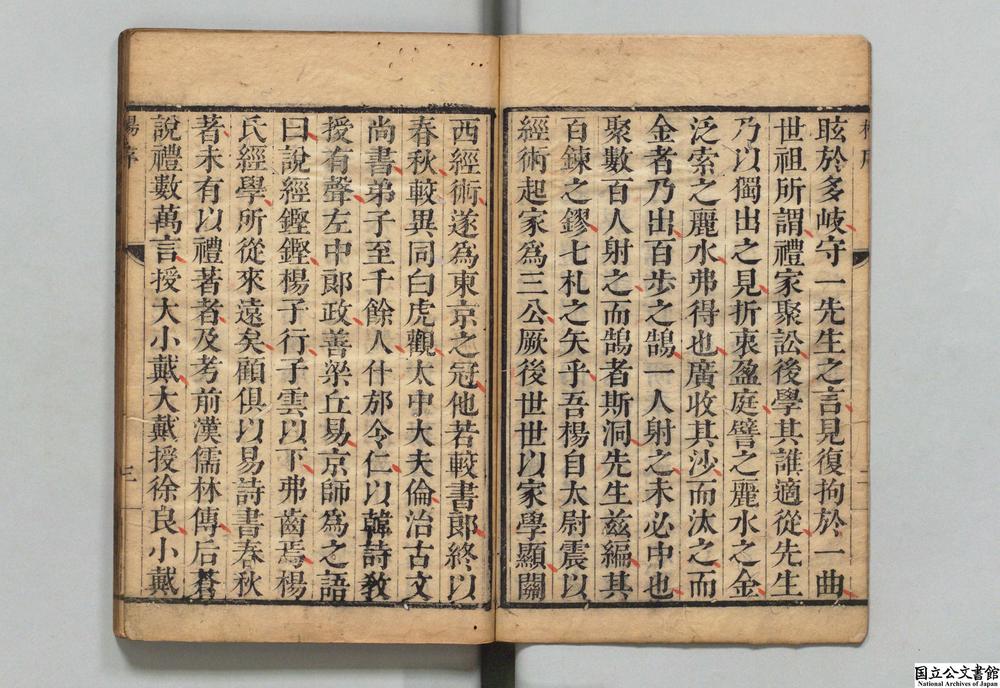 眩於多岐守一先生之言見復拘於一曲
世祖所謂禮家聚訟後學其誰適從先生
乃以獨出之見折衷盈庭譬之麗水之金
泛索之麗水弗得也廣收其沙而汰之而
金者乃出百步之鵠一人射之未必中也
聚數百人射之而鵠者斯洞先生兹編其
百鍊之鏐七札之矢乎吾楊自太尉震以
經術起家為三公厥後世世以家學顯關
西經術遂為東京之冠他若較書郎終以
春秋較異同白虎觀太中大夫倫治古文
尚書弟子至千餘人什邡令仁以韓詩教
授有聲左中郎政善梁丘易京師為之語
曰說經鏗鏗楊子行子雲以下弗齒焉楊
氏經學所從來遠矣顧俱以易詩書春秋
著未有以禮著者及考前漢儒林傳后蒼
說禮數萬言授大小戴大戴授徐良小戴
楊序
三
国立公文書館
National Archives of Japan